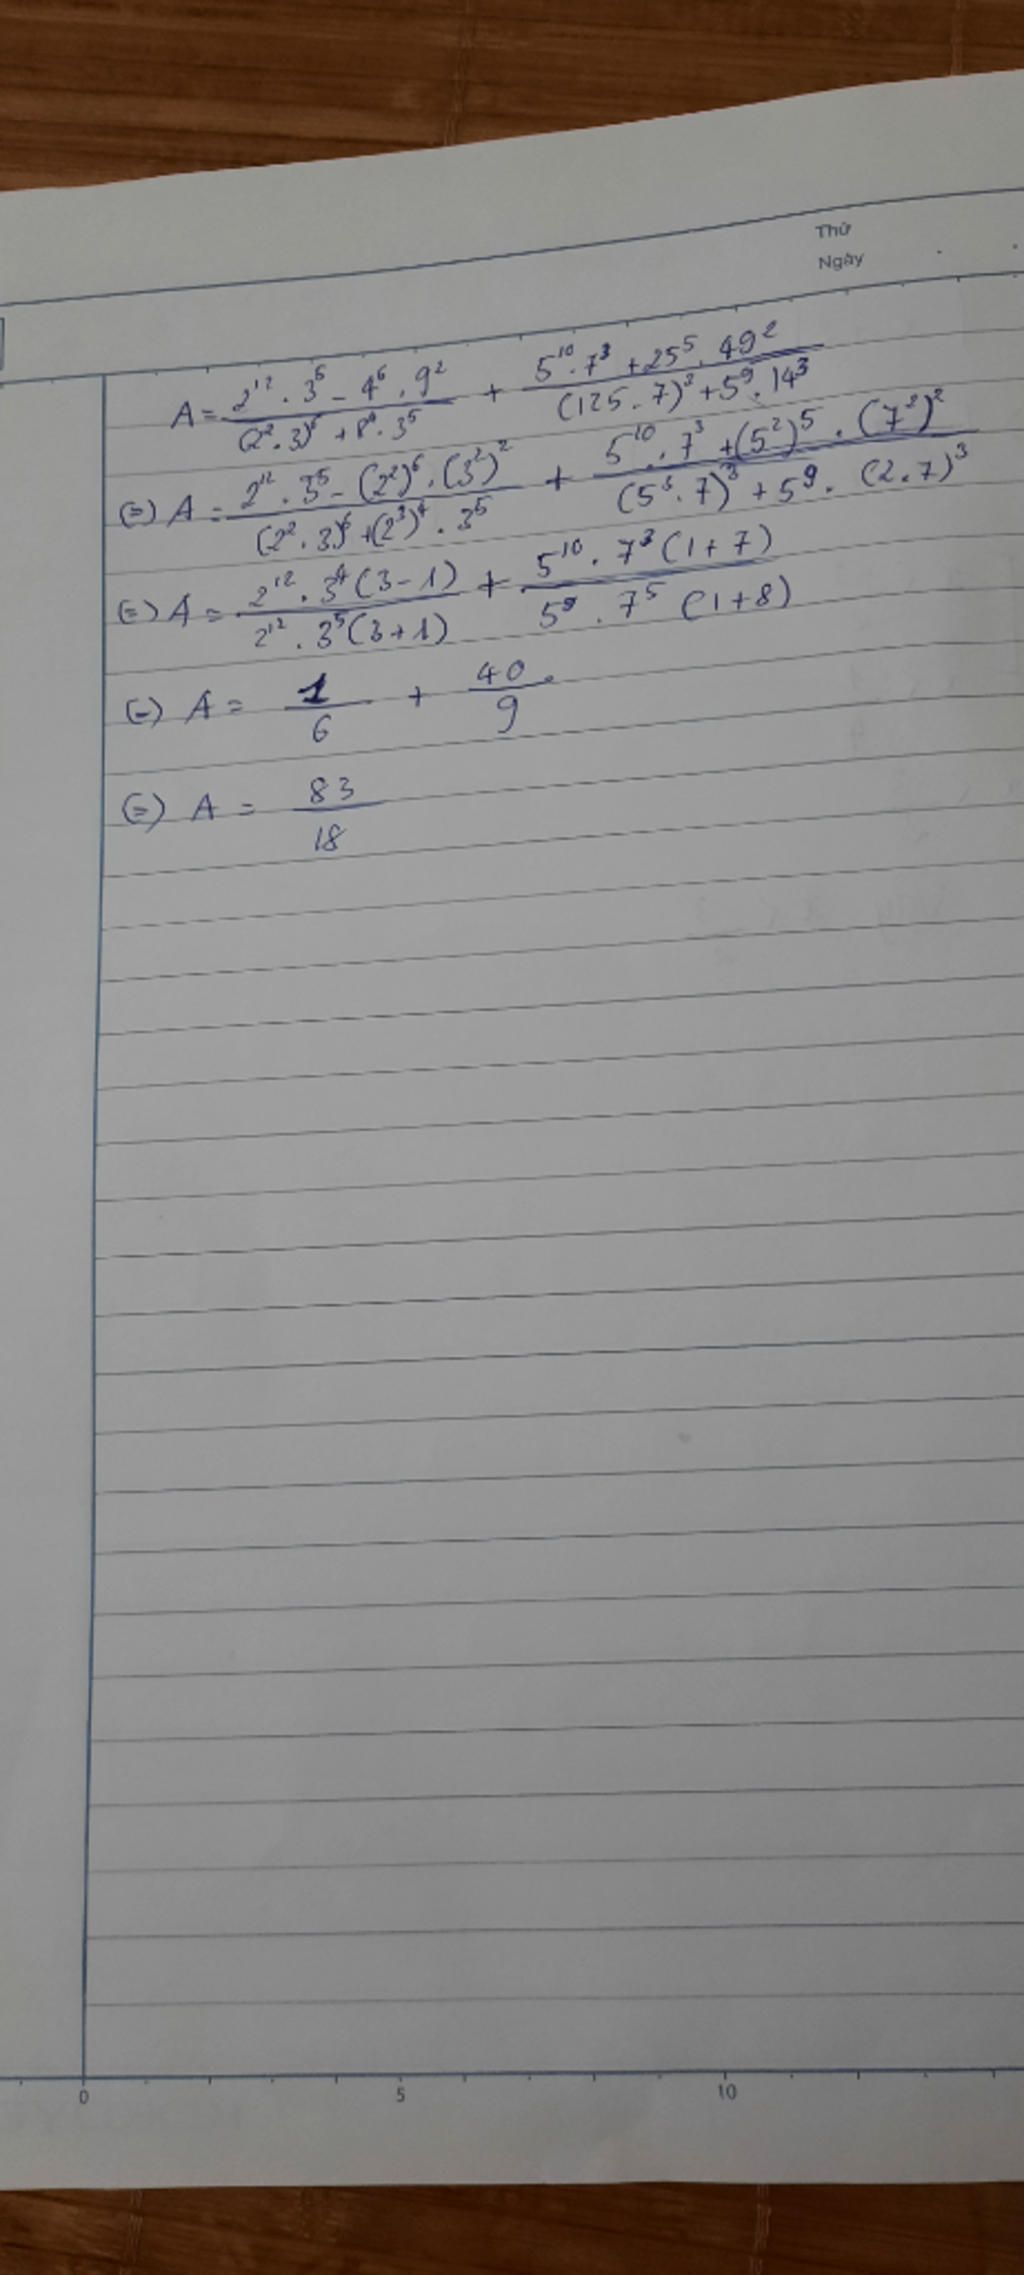 Thứ
Ngày
A = (2^12 . 3^5 - 4^6 . 9^2)/((2^2 . 3)^6 + 8^4 . 3^5) + (5^10 . 7^3 + 25^5 . 49^2)/((125 . 7)^3 + 5^9 . 14^3)
(=) A = (2^12 . 3^5 - (2^2)^6 . (3^2)^2)/((2^2 . 3)^6 + (2^3)^4 . 3^5) + (5^10 . 7^3 + (5^2)^5 . (7^2)^2)/((5^3 . 7)^3 + 5^9 . (2 . 7)^3)
(=) A = (2^12 . 3^4 (3 - 1))/(2^12 . 3^5 (3 + 1)) + (5^10 . 7^3 (1 + 7))/(5^9 . 7^5 (1 + 8))
(=) A = 1/6 + 40/9
(=) A = 83/18
0 5 10